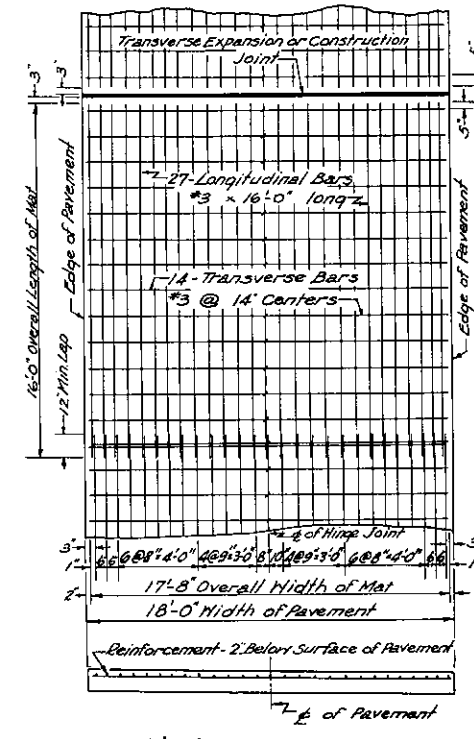 Transverse Expansion or Construction
Joint
3"
3"
5"
Edge of Pavement
Edge of Pavement
27-Longitudinal Bars
#3 x 16'-0" long
14-Transverse Bars
#3 @ 14" Centers
16'-0" Overall Length of Mat
12" Min. Lap
℄ of Hinge Joint
3"
1"
6 6 6@8"=4'-0" 4@9"=3'-0" 8" 10" 4@9"=3'-0" 6@8"=4'-0" 6 6
2"
17'-8" Overall Width of Mat
18'-0" Width of Pavement
Reinforcement - 2" Below Surface of Pavement
℄ of Pavement